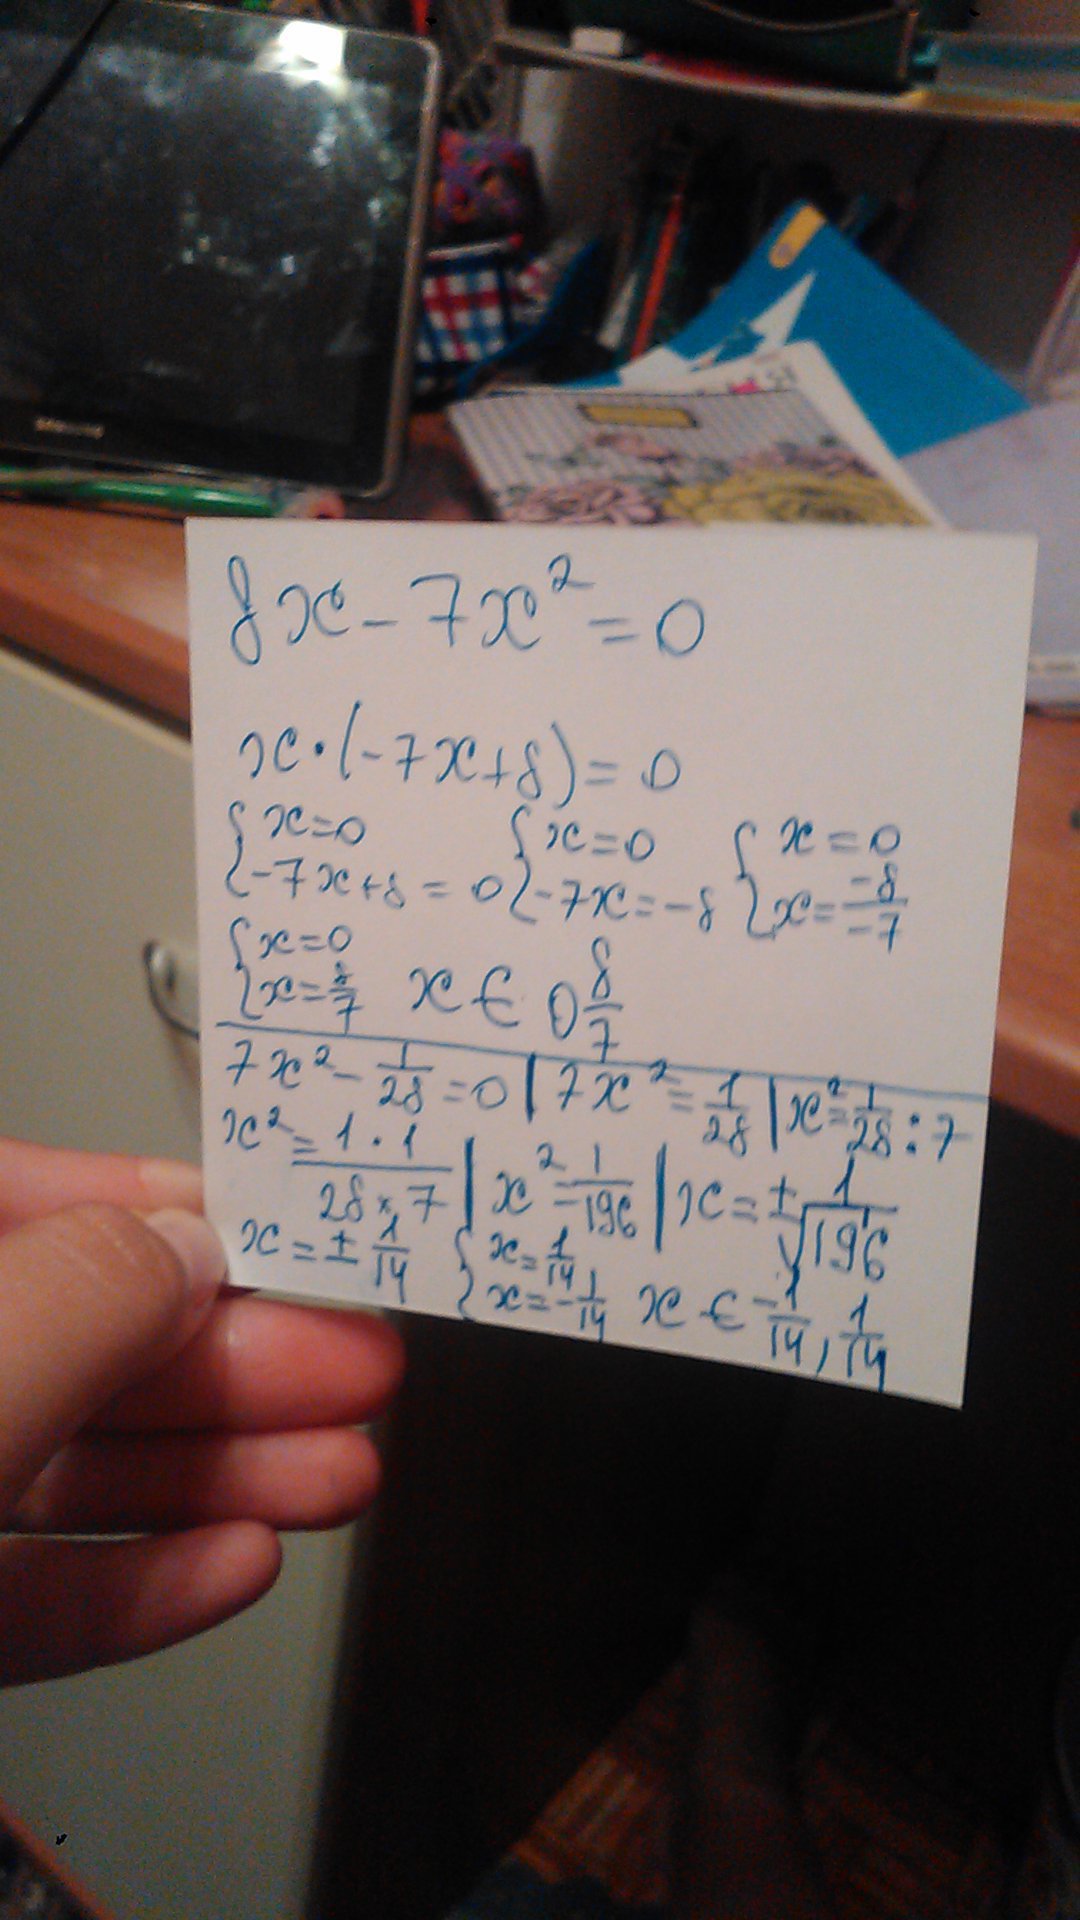 SAMSUNG
8x - 7x² = 0
x·(-7x+8) = 0
{x=0 {x=0 {x=0
{-7x+8=0 {-7x=-8 {x=-8/-7
{x=0
{x=8/7 x € 0 8/7
7x² - 1/28 = 0 | 7x² = 1/28 | x² = 1/28 : 7
x² = 1·1/28×7 | x² = 1/196 | x = ±√1/196
x = ± 1/14 {x=1/14
{x=-1/14 x € -1/14, 1/14